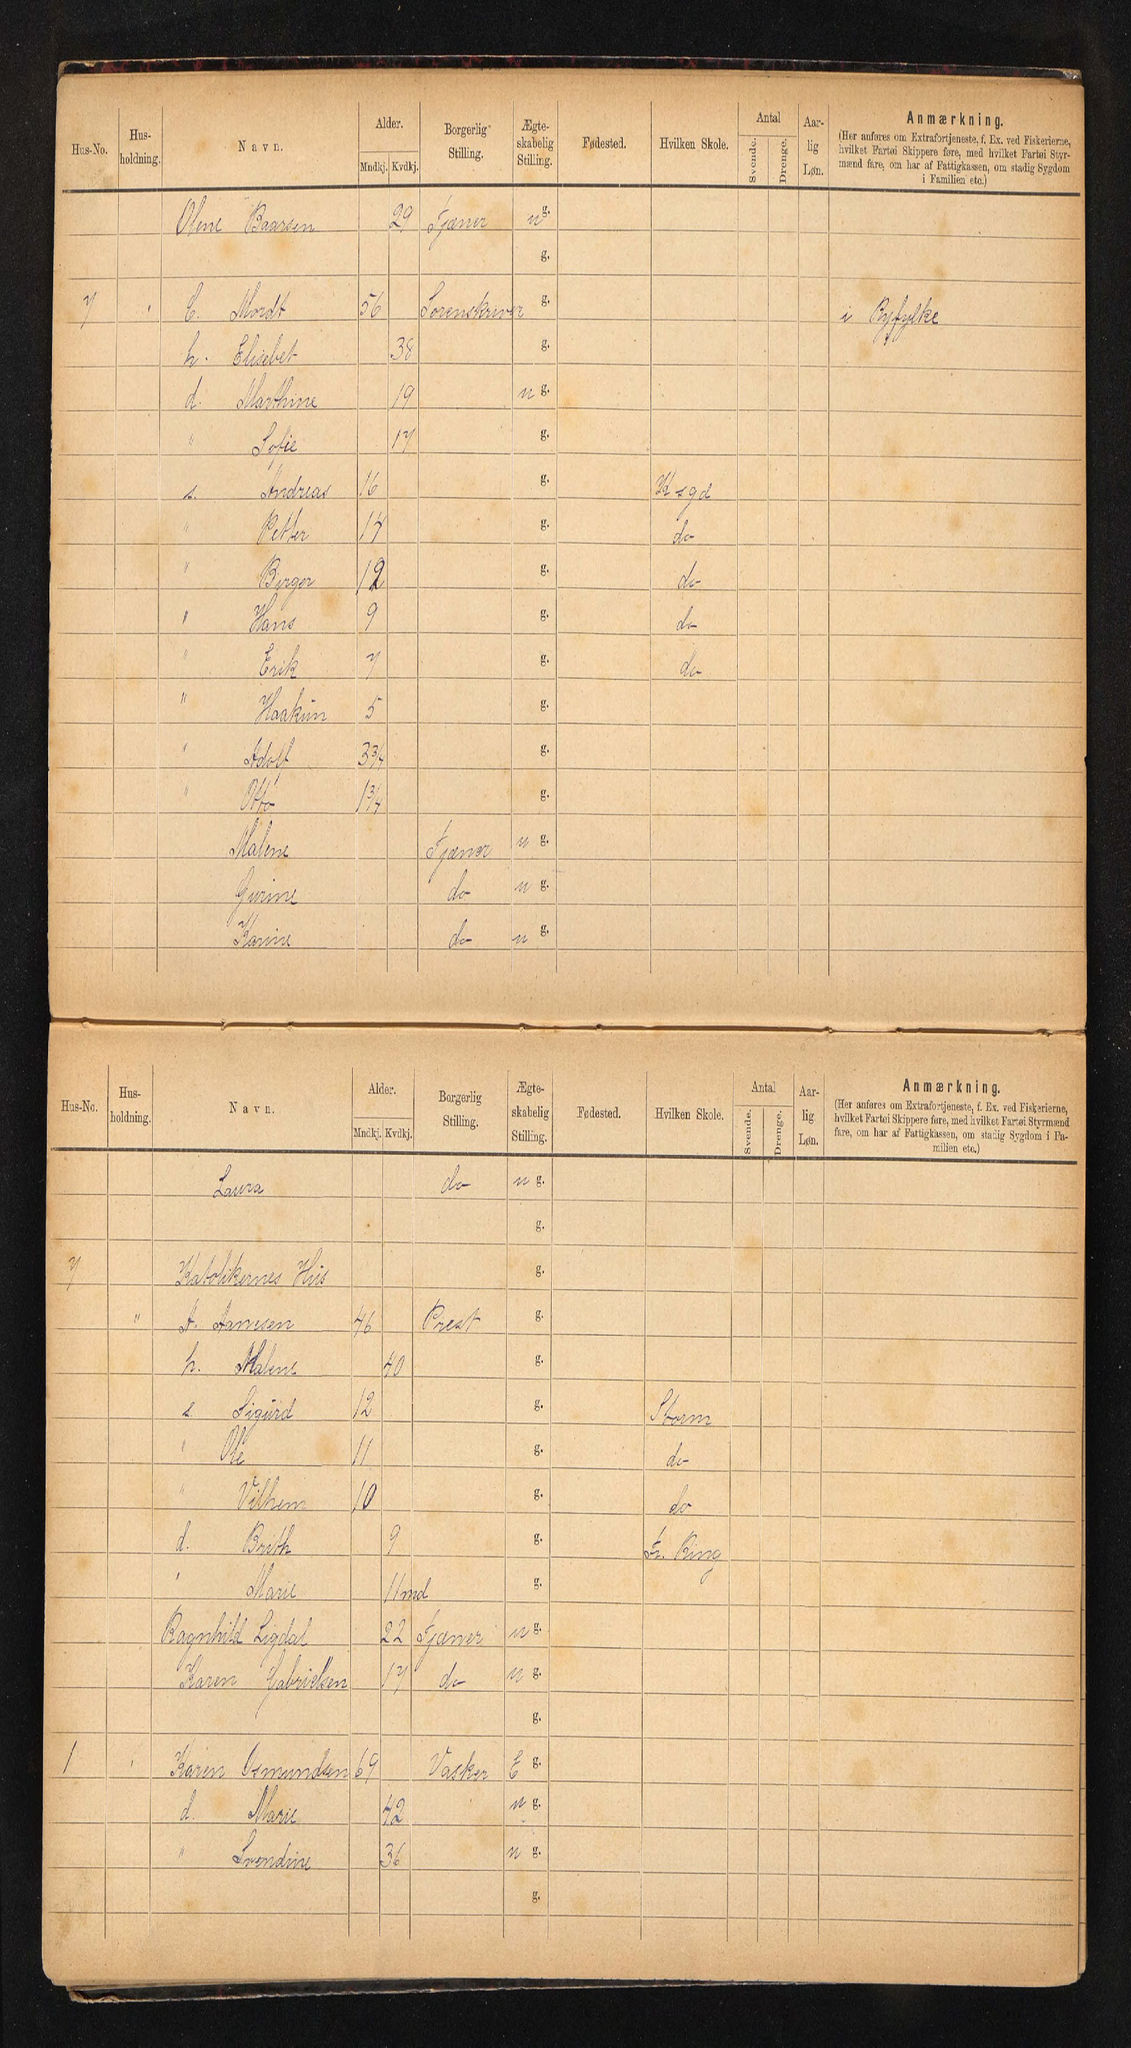 Hus-No. Hus-holdning. Navn. Alder. Mndkj. Kvdkj. Borgerlig Stilling. Ægte-skabelig Stilling. Fødested. Hvilken Skole. Antal Svende. Drenge. Aar-lig Løn. Anmærkning.
(Her anføres om Extrafortjeneste, f. Ex. ved Fiskerierne,
hvilket Fartøi Skippere føre, med hvilket Fartøi Styr-
mænd fare, om har af Fattigkassen, om stadig Sygdom
i Familien etc.)
Olene Baarsen 29 Tjæner u g.
g.
7 " C. Mordt 56 Sorenskriver g. i Ryfylke
h. Elisebet 38 g.
d. Marthine 19 u g.
" Sofie 17 g.
s. Andreas 16 g. K sgd
" Petter 14 g. do
" Berger 12 g. do
" Hans 9 g. do
" Erik 7 g. do
" Haakun 5 g.
" Adolf 3 3/4 g.
" Otto 1 3/4 g.
Malene Tjæner u g.
Gurine do u g.
Karine do u g.
Hus-No. Hus-holdning. Navn. Alder. Mndkj. Kvdkj. Borgerlig Stilling. Ægte-skabelig Stilling. Fødested. Hvilken Skole. Antal Svende. Drenge. Aar-lig Løn. Anmærkning.
(Her anføres om Extrafortjeneste, f. Ex. ved Fiskerierne,
hvilket Fartøi Skippere føre, med hvilket Fartøi Styrmænd
fare, om har af Fattigkassen, om stadig Sygdom i Fa-
milien etc.)
Laura do u g.
g.
7 Katolikernes Hus g.
" A. 46 Prest g.
h. Malene 40 g.
s. Sigurd 12 g. Storm
" Ole 11 g. do
" Vilhem 10 g. do
d. Brith 9 g. Fr. Ring
" Marie 11 md g.
Ragnhild Ligdal 22 Tjæner u g.
Karen Gabrielsen 17 do u g.
g.
1 " Karen Osmundsen 69 Vasker E g.
d. Marie 42 u g.
" Svendine 36 u g.
g.